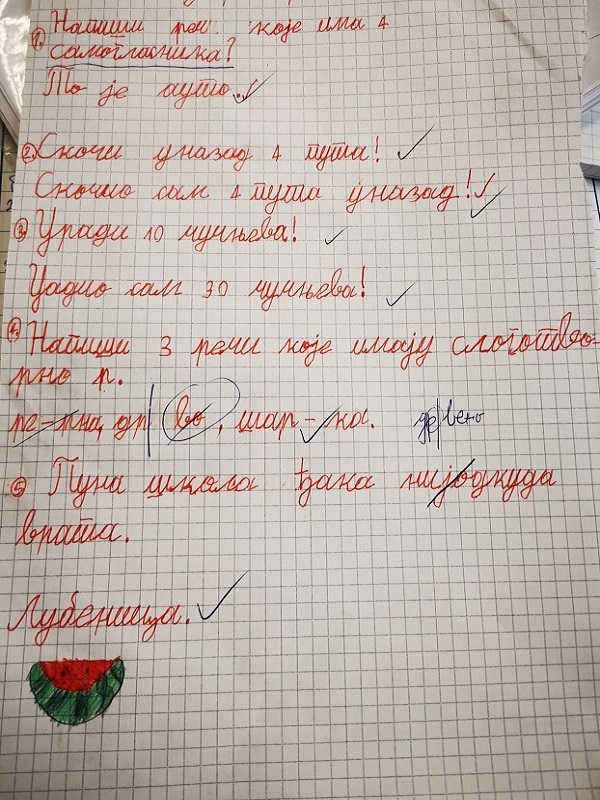 1. Напиши реч које има 4
самогласника?
То је ауто.
2. Скочи уназад 4 пута!
Скочио сам 4 пута уназад!
3. Уради 10 чучњева!
Уадио сам 30 чучњева!
4. Напиши 3 речи које имају слоготво-
рно р.
ре-рна, др|во, шар-ка. др|вено
5. Пуна школа ђака нијодкуда
врата.
Лубеница.